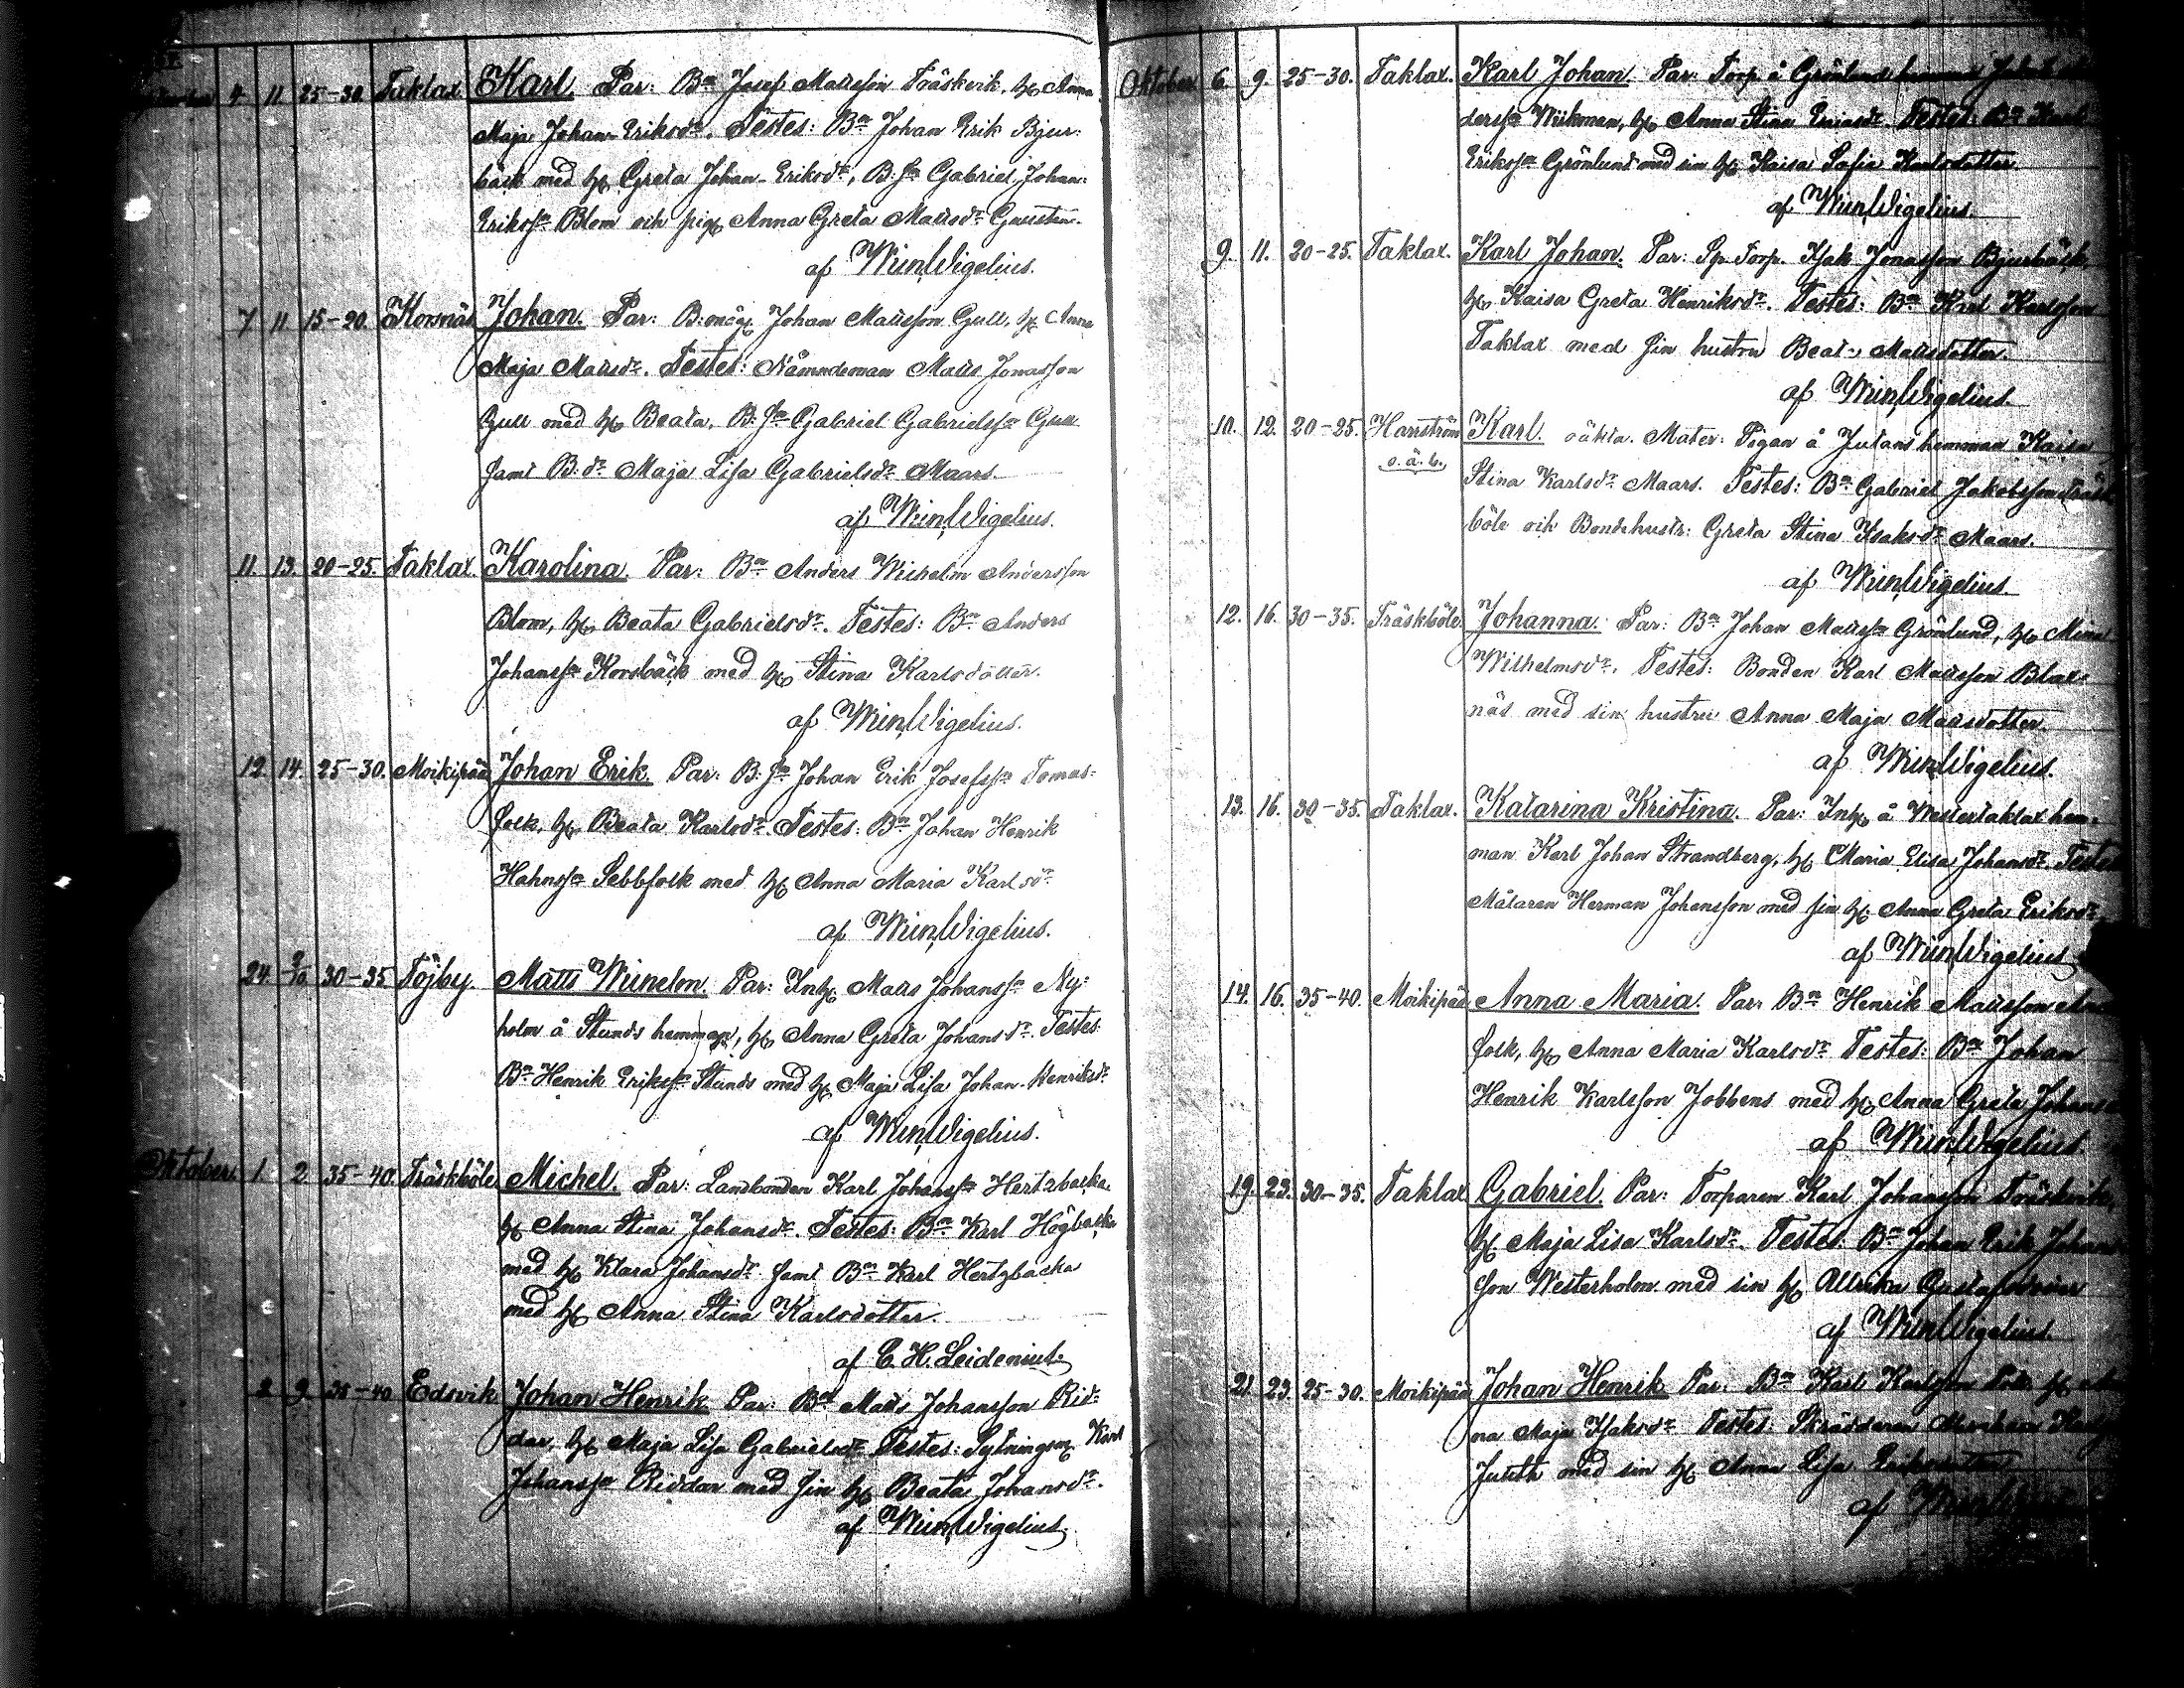 4 11 25-30 Taklax Karl. Par: Bn Josef Mattsson Träskvik, h. Anna
Maja Johan-Eriksdr. Testes: Bn Johan Erik Bjur-
bäck med h. Greta Johan-Eriksdr, B:sn Gabriel Johan-
Erikssn Blom och pig. Anna Greta Mattsdr
af Wigelius.
7 11 15-20 Korsnäs Johan. Par: B:måg Johan Mattsson Gull, h. Anna
Maja Mattsdr. Testes: Nämndeman Matts Jonasson
Gull med h. Beata, B:sn Gabriel Gabrielssn Gull
samt B:dr Maja Lisa Gabrielsdr Maars.
af Wigelius.
11. 13. 20-25. Taklax. Karolina. Par: Bn Anders Wilhelm Andersson
Blom, h. Beata Gabrielsdr. Testes: Bn Anders
Johanssn Korsbäck med h. Stina Karlsdotter.
af Wigelius.
12. 14. 25-30. Moikipää Johan Erik. Par: B:sn Johan Erik Josefssn Tomas-
folk, h. Beata Karlsdr. Testes: Bn Johan Henrik
Hahnssn Sebbfolk med h. Anna Maria Karlsdr
af Wigelius.
24. 2/10 30-35 Töjby Matts Wilhelm. Par: Inh. Matts Johanssn Ny-
holm å Stunds hemman, h. Anna Greta Johansdr. Testes:
Bn Henrik Erikssn Stunds med h. Maja Lisa Johan-Henriksdr
af Wigelius.
Oktober. 1 2. 35-40. Träskböle Michel. Par: Landbonden Karl Johanssn Hertzbacka
h. Anna Stina Johansdr. Testes: Bn Karl Högbacka
med h. Klara Johansdr samt Bn Karl Hertzbacka
med h. Anna Stina Karlsdotter.
af C. H. Leidenius.
2 9 35-40 Edsvik Johan Henrik. Par: Bn Matts Johansson Rid-
dar, h. Maja Lisa Gabrielsdr Testes: Sytningsm. Karl
Johanssn Riddar med sin h. Beata Johansdr.
af Wigelius.
Oktober 6 9. 25-30. Taklax. Karl Johan. Par: Torp. å Grönlund hemman
derssn Wikman, h. Anna Stina Testes: Bn Karl
Erikssn Grönlund med sin h. Kaisa Sofia Karlsdotter.
af Wigelius.
9. 11. 20-25. Taklax. Karl Johan. Par: Sp. Torp. Isak Jonasson Bjurbäck,
h. Kaisa Greta Henriksdr. Testes: Bn Karl Karlsson
Taklax med sin hustru Beata Mattsdotter.
af Wigelius.
10. 12. 20-25. Harrström Karl. oäkta. Mater: Pigan å Jutans hemman Kaisa
o.ä.b.
Stina Karlsdr Maars. Testes: Bn Gabriel Jakobsson Träsk-
böle och Bondehustr: Greta Stina Isaksdr Maars.
af Wigelius.
12. 16. 30-35. Träskböle Johanna. Par: Bn Johan Mattssn Grönlund, h. Mina
Wilhelmsdr. Testes: Bonden Karl Mattsson Blax-
näs med sin hustru Anna Maja Mattsdotter.
af Wigelius.
13. 16. 30-35. Taklax. Katarina Kristina. Par: Inh. å Westertaklax hem-
man Karl Johan Strandberg, h. Maria Elisa Johansdr. Testes
Målaren Herman Johansson med sin h. Anna Greta Eriksdr.
af Wigelius
14. 16. 35-40. Moikipää Anna Maria. Par: Bn Henrik Mattsson
folk, h. Anna Maria Karlsdr Testes: Bn Johan
Henrik Karlsson Jobbens med h. Anna Greta Johans
af Wigelius
19. 23. 30-35. Taklax Gabriel. Par: Torparen Karl Johansson Träskvik,
h. Maja Lisa Karlsdr. Testes: Bn Johan Erik Johans
son Westerholm med sin h. Ullrika
af Wigelius.
21 23. 25-30. Moikipää Johan Henrik Par: Bn Karl Karlsson
na Maja Isaksdr Testes: Skräddaren
Juuth med sin h. Anna Lisa
af